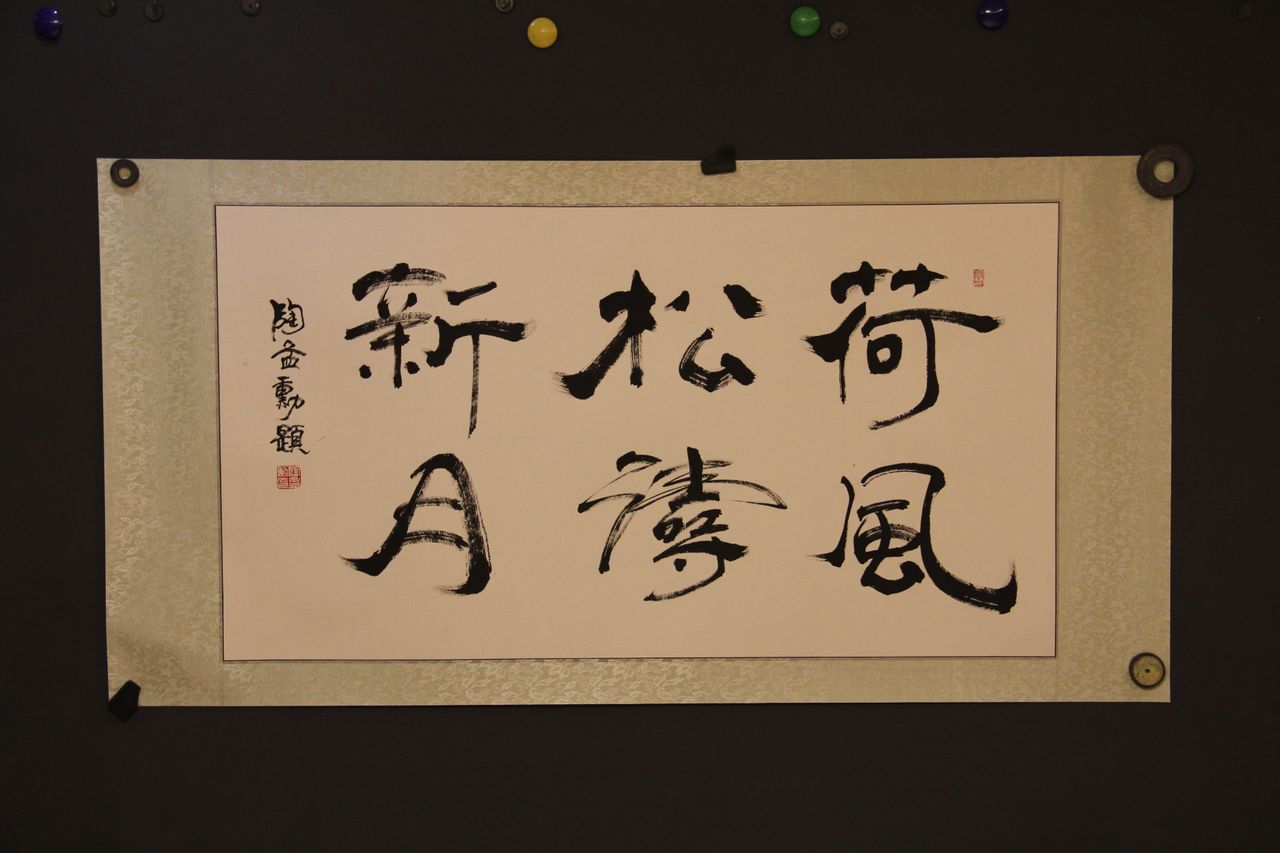 荷風
松濤
新月
陶益勳題